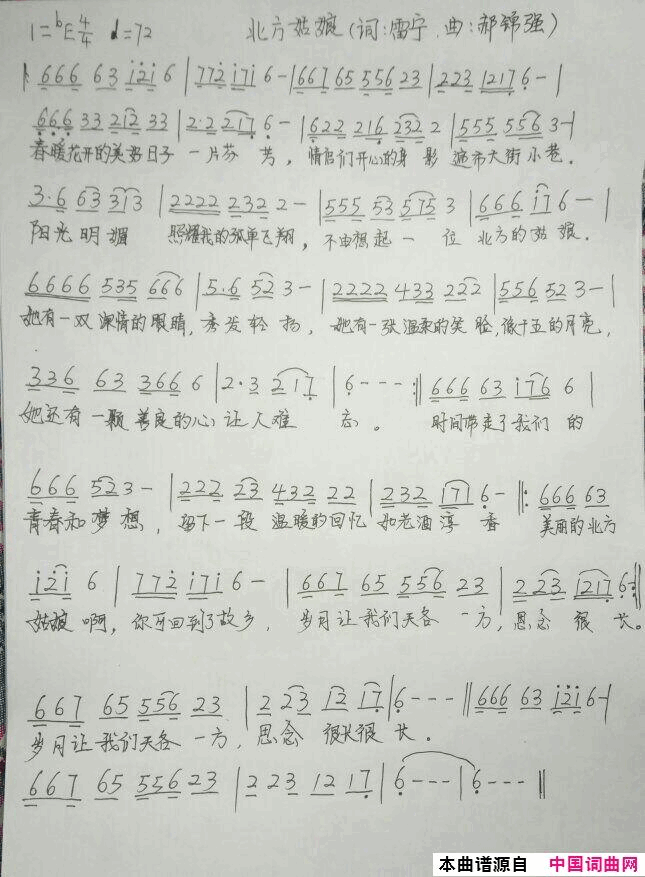 1=ᵇE 4/4 ♩=72 北方姑娘(词:雷宁.曲:郝锦强)
666 63 i̇2̇i̇ 6 | 772̇ i̇7i̇ 6- | 667 65 556 23 | 223 1217 6- |
666 33 212 33 | 2·2 2217 6- | 622 216 232 2 | 555 556 3- |
春暖花开的美好日子 一片芬 芳,情侣们开心的身 影 遍布大街小巷.
3·6 63 313 | 2222 232 2- | 555 53 575 3 | 666 i̇7 6- |
阳光明媚 照耀我的孤单飞翔,不由想起一 位 北方的姑娘.
6666 535 666 | 5·6 52 3- | 2222 433 222 | 556 52 3- |
她有一双深情的眼睛,秀发轻扬,她有一张温柔的笑脸,像十五的月亮,
336 63 366 6 | 2·3 217 | 6--- :‖ 666 63 i76 6 |
她还有一颗善良的心让人难 忘。 时间带走了我们的
666 523- | 222 23 432 22 | 232 171 6- ‖: 666 63
青春和梦想,留下一段 温暖的回忆 如老酒淳香 美丽的北方
i̇2̇i̇ 6 | 772̇ i̇7i̇ 6- | 667 65 556 23 | 2 23 1217 6- :‖
姑娘啊,你可回到了故乡, 岁月让我们天各一方,思念 很 长。
667 65 556 23 | 2 23 12 17 | 6--- ‖ 666 63 i̇2̇i̇ 6- |
岁月让我们天各一方,思念 很长很 长.
667 65 556 23 | 2 23 12 17 | 6--- | 6--- ‖
本曲谱源自 中国词曲网